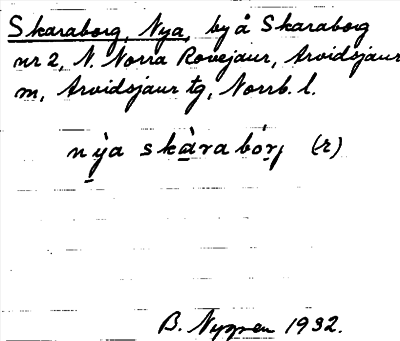 Skaraborg, Nya, by å Skaraborg
nr 2, N. Norra Rovejaur, Arvidsjaur
m, Arvidsjaur tg, Norrb. l.
nỳa skàrabórj (-r)
B. Nygren 1932.